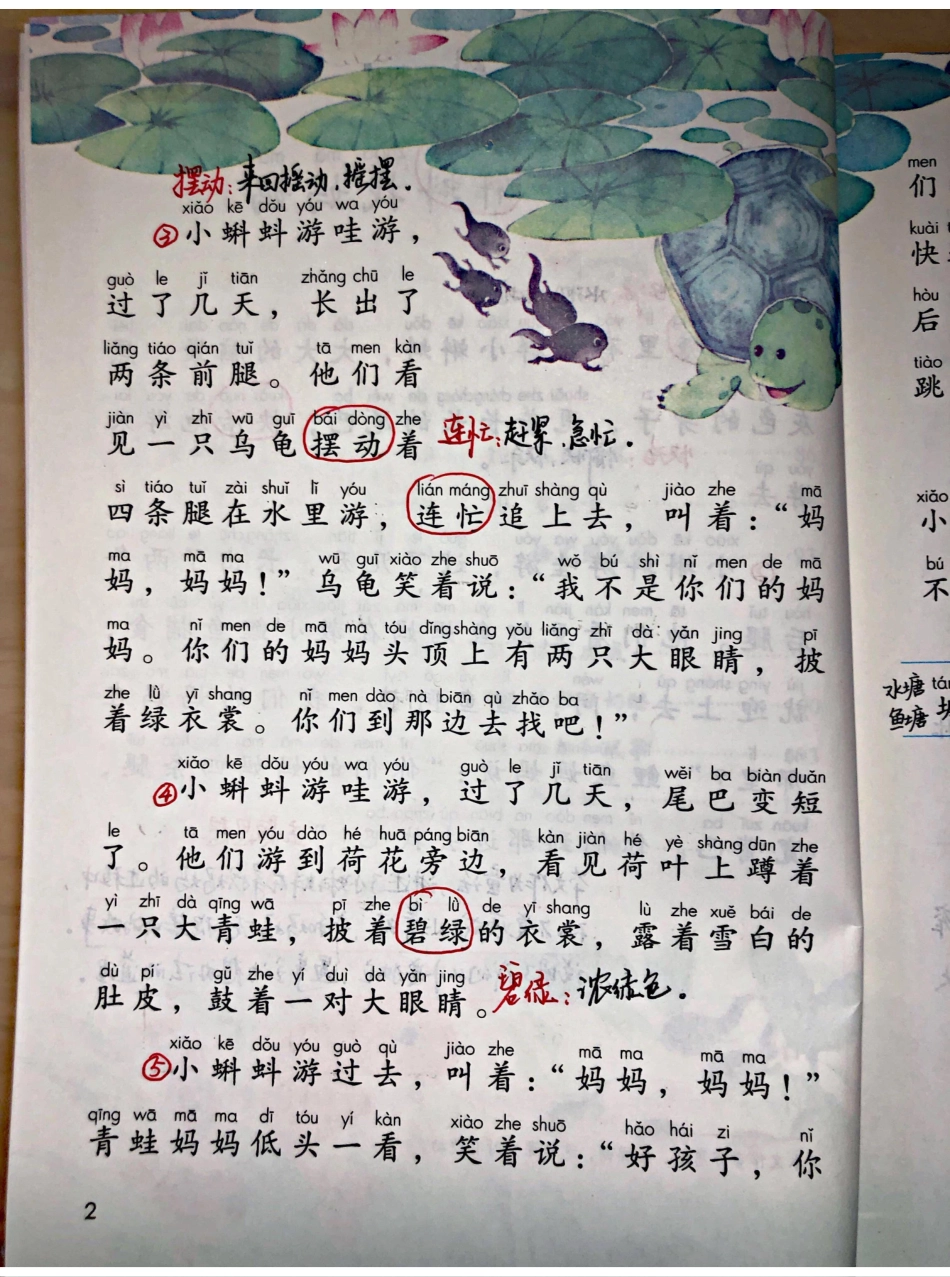 摆动：来回摇动，摇摆．
xiǎo kē dǒu yóu wa yóu
③小蝌蚪游哇游，
guò le jǐ tiān zhǎng chū le
过了几天，长出了
liǎng tiáo qián tuǐ tā men kàn
两条前腿。他们看
jiàn yì zhī wū guī bǎi dòng zhe
见一只乌龟摆动着
连忙：赶紧，急忙．
sì tiáo tuǐ zài shuǐ lǐ yóu lián máng zhuī shàng qù jiào zhe mā
四条腿在水里游，连忙追上去，叫着：“妈
ma mā ma wū guī xiào zhe shuō wǒ bú shì nǐ men de mā
妈，妈妈！”乌龟笑着说：“我不是你们的妈
ma nǐ men de mā ma tóu dǐng shàng yǒu liǎng zhī dà yǎn jing pī
妈。你们的妈妈头顶上有两只大眼睛，披
zhe lǜ yī shang nǐ men dào nà biān qù zhǎo ba
着绿衣裳。你们到那边去找吧！”
xiǎo kē dǒu yóu wa yóu guò le jǐ tiān wěi ba biàn duǎn
④小蝌蚪游哇游，过了几天，尾巴变短
le tā men yóu dào hé huā páng biān kàn jiàn hé yè shàng dūn zhe
了。他们游到荷花旁边，看见荷叶上蹲着
yì zhī dà qīng wā pī zhe bì lǜ de yī shang lù zhe xuě bái de
一只大青蛙，披着碧绿的衣裳，露着雪白的
dù pí gǔ zhe yí duì dà yǎn jing
肚皮，鼓着一对大眼睛。
碧绿：浓绿色．
xiǎo kē dǒu yóu guò qù jiào zhe mā ma mā ma
⑤小蝌蚪游过去，叫着：“妈妈，妈妈！”
qīng wā mā ma dī tóu yí kàn xiào zhe shuō hǎo hái zi nǐ
青蛙妈妈低头一看，笑着说：“好孩子，你
2
men
们
kuài
快
hòu
后
tiào
跳
xiǎo
小
bú
不
水塘
鱼塘